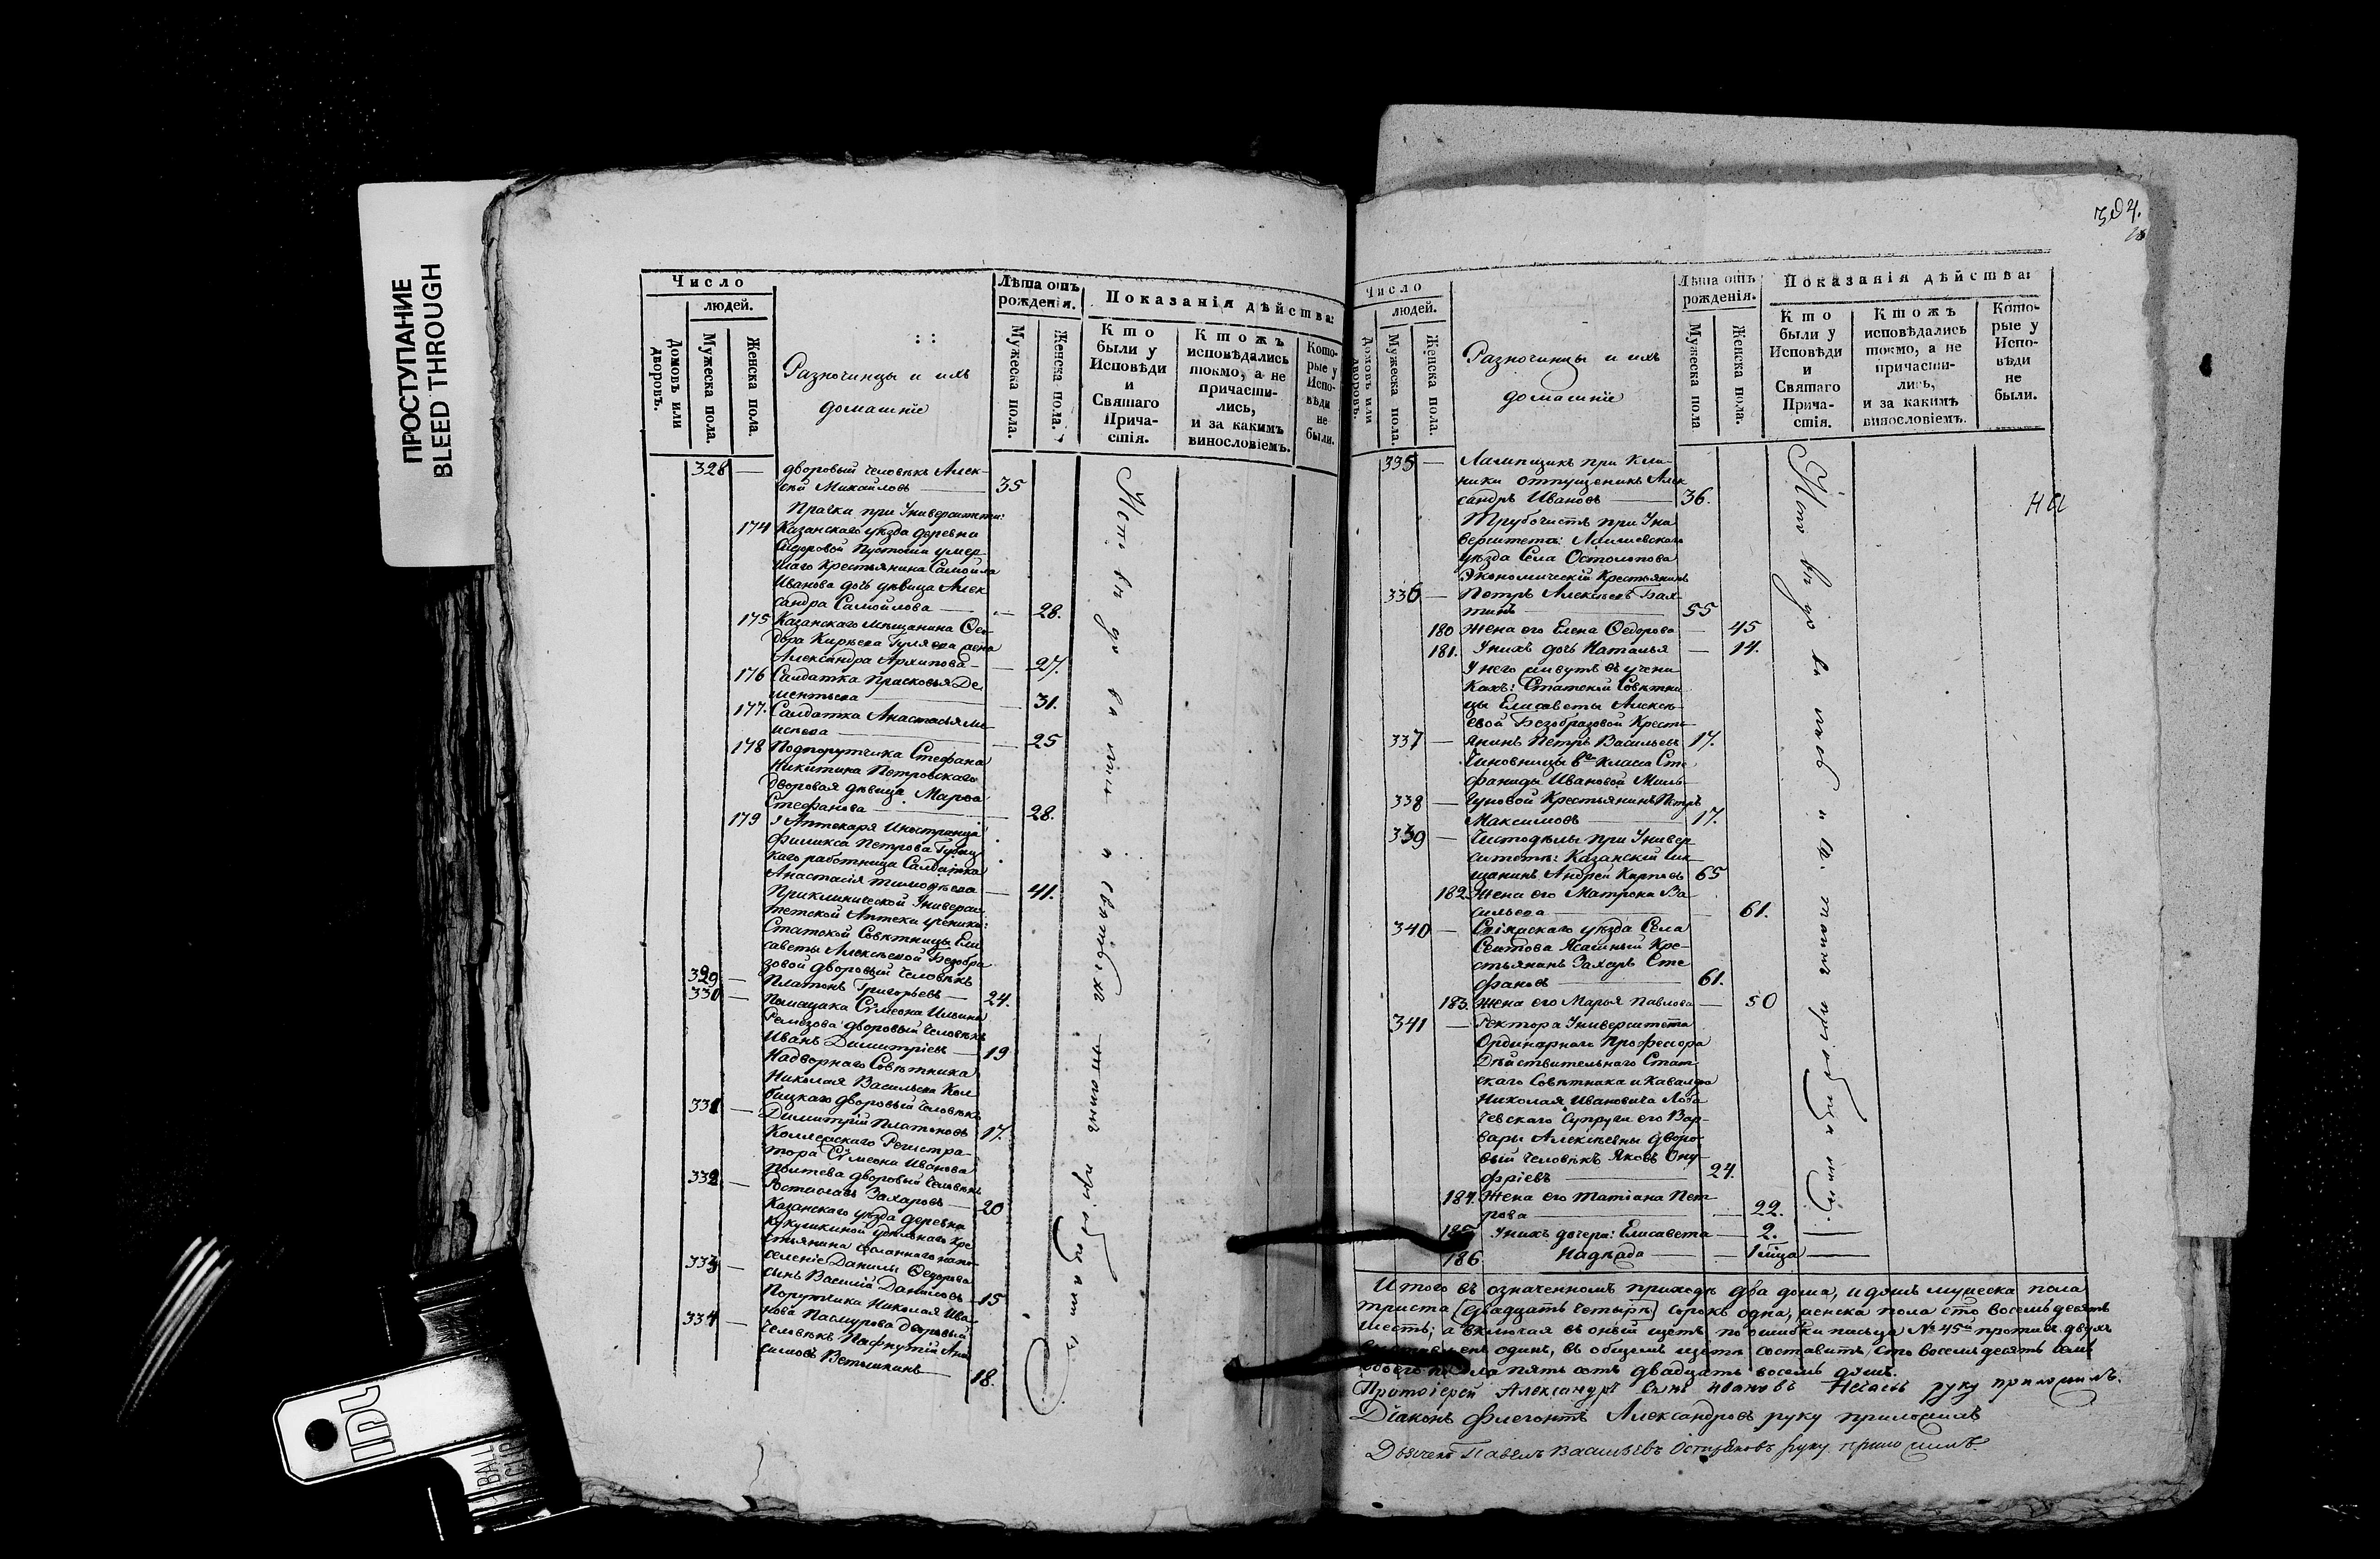 ПРОСТУПАНИЕ
BLEED THROUGH
Число
людей.
Домовъ или дворовъ.
Мужеска пола.
Женска пола.
Разночинцы и ихъ
домашніе
Лѣта отъ
рожденія.
Мужеска пола.
Женска пола.
Показанія дѣйства:
Кто
были у
Исповѣди
и
Святаго
Прича-
стія.
Ктожъ
исповѣдались
токмо, а не
причасти-
лись,
и за какимъ
винословіемъ.
Кото-
рые у
Испо-
вѣди
не
были.
328 — дворовый человѣкъ Алек-
сѣй Михайловъ — 35
Прачки при Университетѣ:
174 Казанскаго уѣзда деревни
Сидоровой Пустоши умер
шаго Крестьянина Самойла
Иванова дочь дѣвица Алек
сандра Самойлова — 28.
175 Казанскаго мѣщанина Ѳео-
дора Кирѣева Гуляева жена
Александра Архипова — 27.
176 Салдатка Прасковья Де-
ментьева — 31.
177. Салдатка Анастасья
— 25
178 Подпорутчика Стефана
Никитина Петровскаго
дворовая дѣвица Марѳа
Стефанова — 28.
179 У Аптекаря Иностранца
Филикса Петрова
каго работница Салдатка
Анастасія Тимоѳѣева — 41.
При клинической Универси-
тетской Аптеки ученики:
Статской Совѣтницы Ели
саветы Алексѣевой Безобра
зовой дворовый человѣкъ
329 — Платонъ Григорьевъ — 24.
330 — Помещика Сѵмеона Ильина
Ремезова дворовый человѣкъ
Иванъ Димитріевъ — 19
Надворнаго Совѣтника
Николая Васильева
бицкаго дворовый человѣкъ
331 — Димитрій Платоновъ 17.
Коллежскаго Регистра-
тора Сѵмеона Иванова
дворовый человѣкъ
332 — Ростиславъ Захаровъ — 20
Казанскаго уѣзда деревни
Кукушкиной удѣльнаго кре
стьянина сосланнаго на по-
селеніе Данилы Ѳедорова
333 — сынъ Василій Даниловъ 15
Порутчика Николая Ива
нова Пасмурова дворовый
334 — человѣкъ Пафнутій
симовъ Ветошкинъ — 18.
304.
Число
людей.
Домовъ или дворовъ.
Мужеска пола.
Женска пола.
Разночинцы и ихъ
домашніе
Лѣта отъ
рожденія.
Мужеска пола
Женска пола.
Показанія дѣйства:
Кто
были у
Исповѣди
и
Святаго
Прича-
стія.
Ктожъ
исповѣдались
токмо, а не
причасти-
лись,
и за какимъ
винословіемъ.
Кото-
рые у
Испо-
вѣди
не
были.
335 — Лампщикъ при Кли-
ники отпущеникъ Алек
сандръ Ивановъ — 36.
Трубочистъ при Уни
верситетѣ: Лаишевскаго
уѣзда Села Остолопова
Экономическій Крестьянинъ
336 — Петръ Алексѣевъ Бах-
тинъ — 55
180 Жена его Елена Ѳедорова — 45
181. У нихъ дочь Наталья — 14.
У него живутъ въ учени
кахъ: Статской Совѣтни
цы Елисаветы Алексѣ-
евой Безобразовой Кресть-
337 — янинъ Петръ Васильевъ 17.
Чиновницы 6го класса Сте
фаниды Ивановой Миль-
338 — гуновой Крестьянинъ Петръ
Максимовъ — 17.
339 — Чистодѣлы при Универ
ситетѣ: Казанскій мѣ-
щанинъ Андрей Карповъ 65
182. Жена его Матрона Ва
сильева — 61.
340 — Свіяжскаго уѣзда Села
Сеитова Ясашный Кре-
стьянинъ Захаръ Сте
фановъ — 61.
183. Жена его Марья Павлова — 50
341 — Ректора Университета
Ординарнаго Профессора
Дѣйствительнаго Стат-
скаго Совѣтника и Кавалера
Николая Ивановича Лоба
чевскаго Супруги его Вар-
вары Алексѣевны дворо-
вый человѣкъ Яковъ Ону-
фріевъ — 24.
184. Жена его Татіана Пет
рова — 22.
185 У нихъ дочери: Елисавета — 2.
186. Надежда — 1 мѣсяца
Итого въ означенномъ приходѣ два дома, и душъ мужеска пола
триста [двадцать четыре] сорокъ одна, женска пола сто восемьдесятъ
шесть; а включая въ оный щетъ по ошибки писца № 45й противъ двухъ
одинъ, въ общемъ щетѣ составитъ сто восемьдесятъ семь
обоего пола пять сотъ двадцать восемь душъ.
Протоіерей Александръ Ивановъ Нечаевъ руку приложилъ.
Діаконъ Флегонтъ Александровъ руку приложилъ
Дьячекъ Павелъ Васильевъ руку приложилъ.